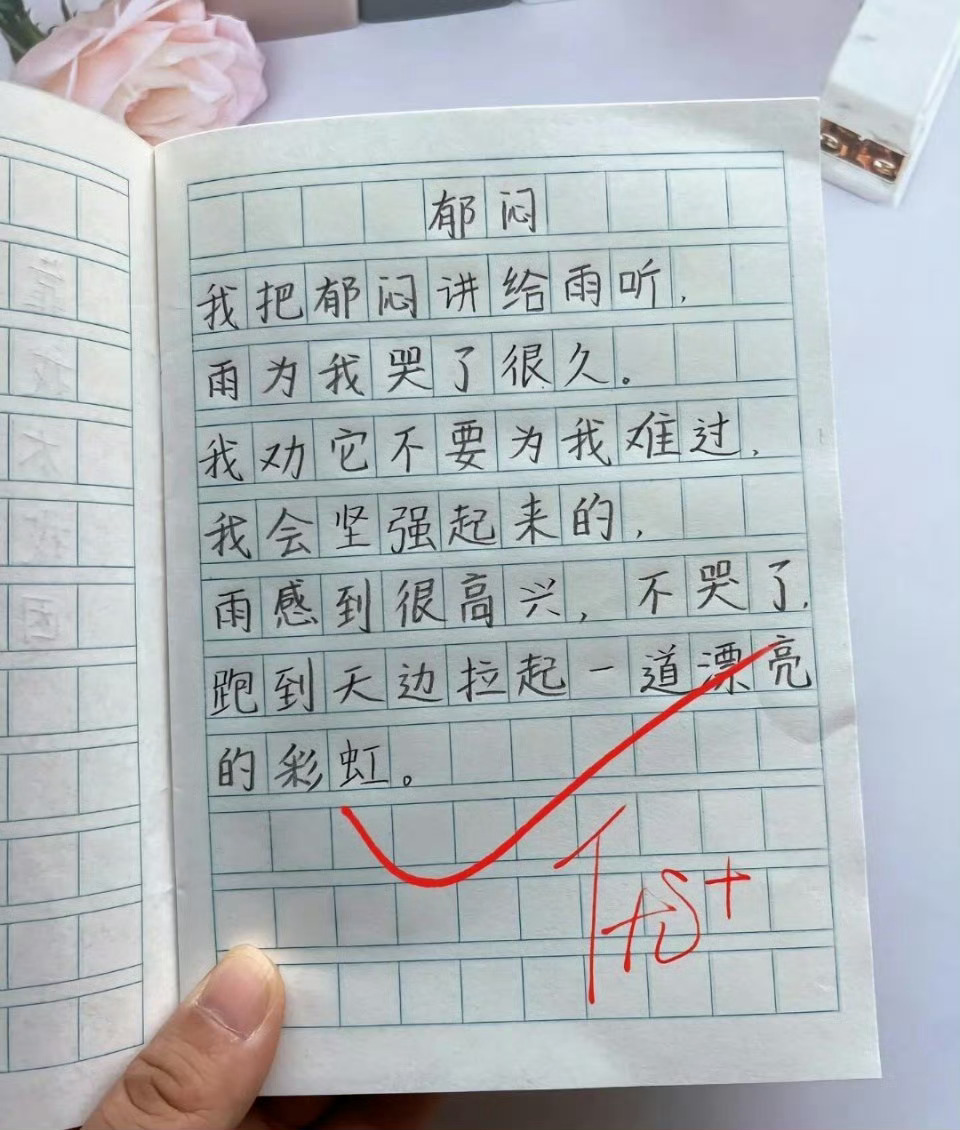 郁闷
我把郁闷讲给雨听，
雨为我哭了很久。
我劝它不要为我难过，
我会坚强起来的，
雨感到很高兴，不哭了，
跑到天边拉起一道漂亮
的彩虹。